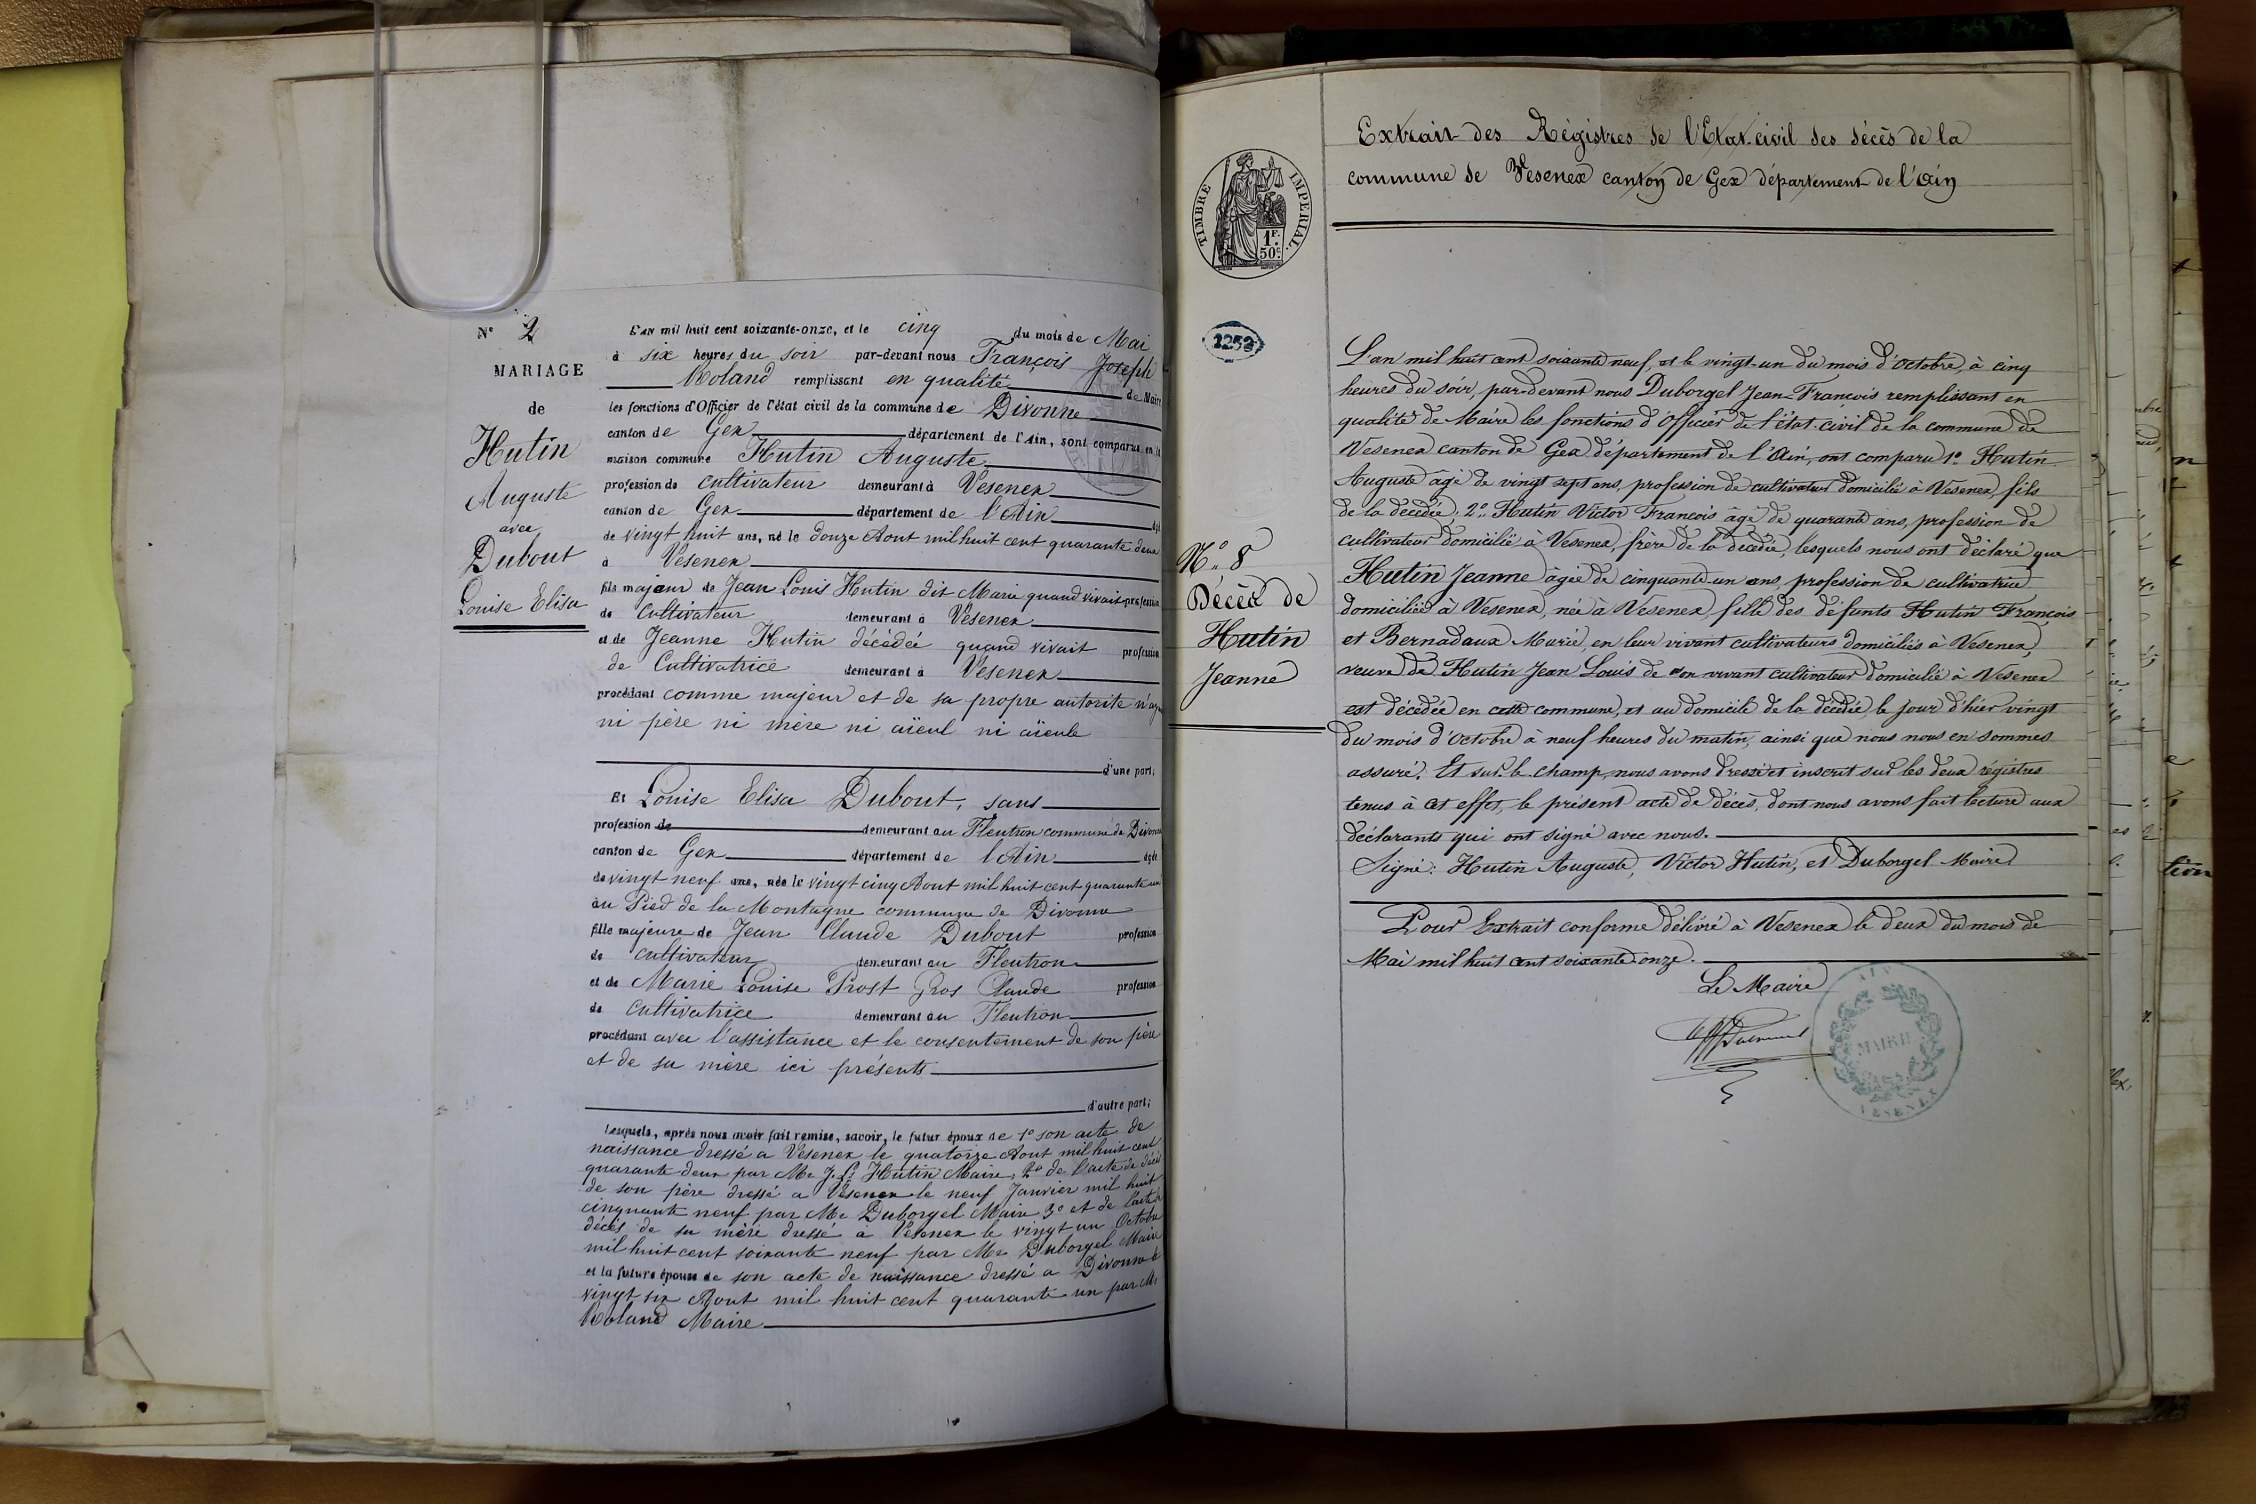 N° 2
MARIAGE
de
Hutin
Auguste
avec
Dubout
Louise Elisa
L'AN mil huit cent soixante-onze, et le cinq du mois de Mai
à six heures du soir par-devant nous François Joseph
Roland remplissant en qualité de Maire
les fonctions d'Officier de l'état civil de la commune de Divonne
canton de Gex département de l'Ain, sont comparus en la
maison commune Hutin Auguste
profession de cultivateur demeurant à Vesenex
canton de Gex département de l'Ain âgé
de vingt huit ans, né le douze Aout mil huit cent quarante deux
à Vesenex
fils majeur de Jean Louis Hutin dit Marie quand vivait profession
de Cultivateur demeurant à Vesenex
et de Jeanne Hutin décédée quand vivait profession
de Cultivatrice demeurant à Vesenex
procédant comme majeur et de sa propre autorité n'ayant
ni père ni mère ni aïeul ni aïeule
d'une part;
Et Louise Elisa Dubout, sans
profession de demeurant au Fleutron commune de Divonne
canton de Gex département de l'Ain âgée
de vingt neuf ans, née le vingt cinq Aout mil huit cent quarante un
au Pied de la Montagne commune de Divonne
fille majeure de Jean Claude Dubout profession
de cultivateur demeurant au Fleutron
et de Marie Louise Prost Gros Claude profession
de Cultivatrice demeurant au Fleutron
procédant avec l'assistance et le consentement de son père
et de sa mère ici présents
d'autre part;
Lesquels, après nous avoir fait remise, savoir, le futur époux de 1° son acte de
naissance dressé a Vesenex le quatorze Aout mil huit cent
quarante deux par Mr J. Ls Hutin Maire, 2° de l'acte de décès
de son père dressé a Vesenex le neuf Janvier mil huit
cinquante neuf par Mr Duborgel Maire 3° et de l'acte de
décès de sa mère dressé à Vesenex le vingt un Octobre
mil huit cent soixante neuf par Mr Duborgel Maire
et la future épouse de son acte de naissance dressé a Divonne le
vingt six Aout mil huit cent quarante un par Mr
Roland Maire
TIMBRE IMPERIAL.
1F.
50c
2252
N° 8
Décès de
Hutin
Jeanne
Extrait des Régistres de l'Etat-civil des décès de la
commune de Vesenex canton de Gex département de l'Ain
L'an mil huit cent soixante neuf, et le vingt-un du mois d'octobre, à cinq
heures du soir, par-devant nous Duborgel Jean-François remplissant en
qualité de Maire les fonctions d'Officier de l'état-civil de la commune de
Vesenex canton de Gex département de l'Ain, ont comparu 1° Hutin
Auguste âgé de vingt sept ans, profession de cultivateur domicilié à Vesenex, fils
de la décédée; 2° Hutin Victor François âgé de quarante ans, profession de
cultivateur domicilié à Vesenex, frère de la décédée, lesquels nous ont déclaré que
Hutin Jeanne âgée de cinquante-un ans, profession de cultivatrice
domiciliée à Vesenex, née à Vesenex, fille des défunts Hutin François
et Bernadaux Marie, en leur vivant cultivateurs domiciliés à Vesenex,
veuve de Hutin Jean Louis de son vivant cultivateur domicilié à Vesenex
est décédée en cette commune, et au domicile de la décédée, le jour d'hier vingt
du mois d'octobre à neuf heures du matin, ainsi que nous nous en sommes
assuré. Et sur-le-champ, nous avons dressé et inscrit sur les deux régistres
tenus à cet effet, le présent acte de décès, dont nous avons fait lecture aux
déclarants qui ont signé avec nous.
Signé: Hutin Auguste, Victor Hutin, et Duborgel Maire
Pour Extrait conforme délivré à Vesenex le deux du mois de
Mai mil huit cent soixante-onze.
Le Maire
AIN
MAIRIE
VESENEX
tion